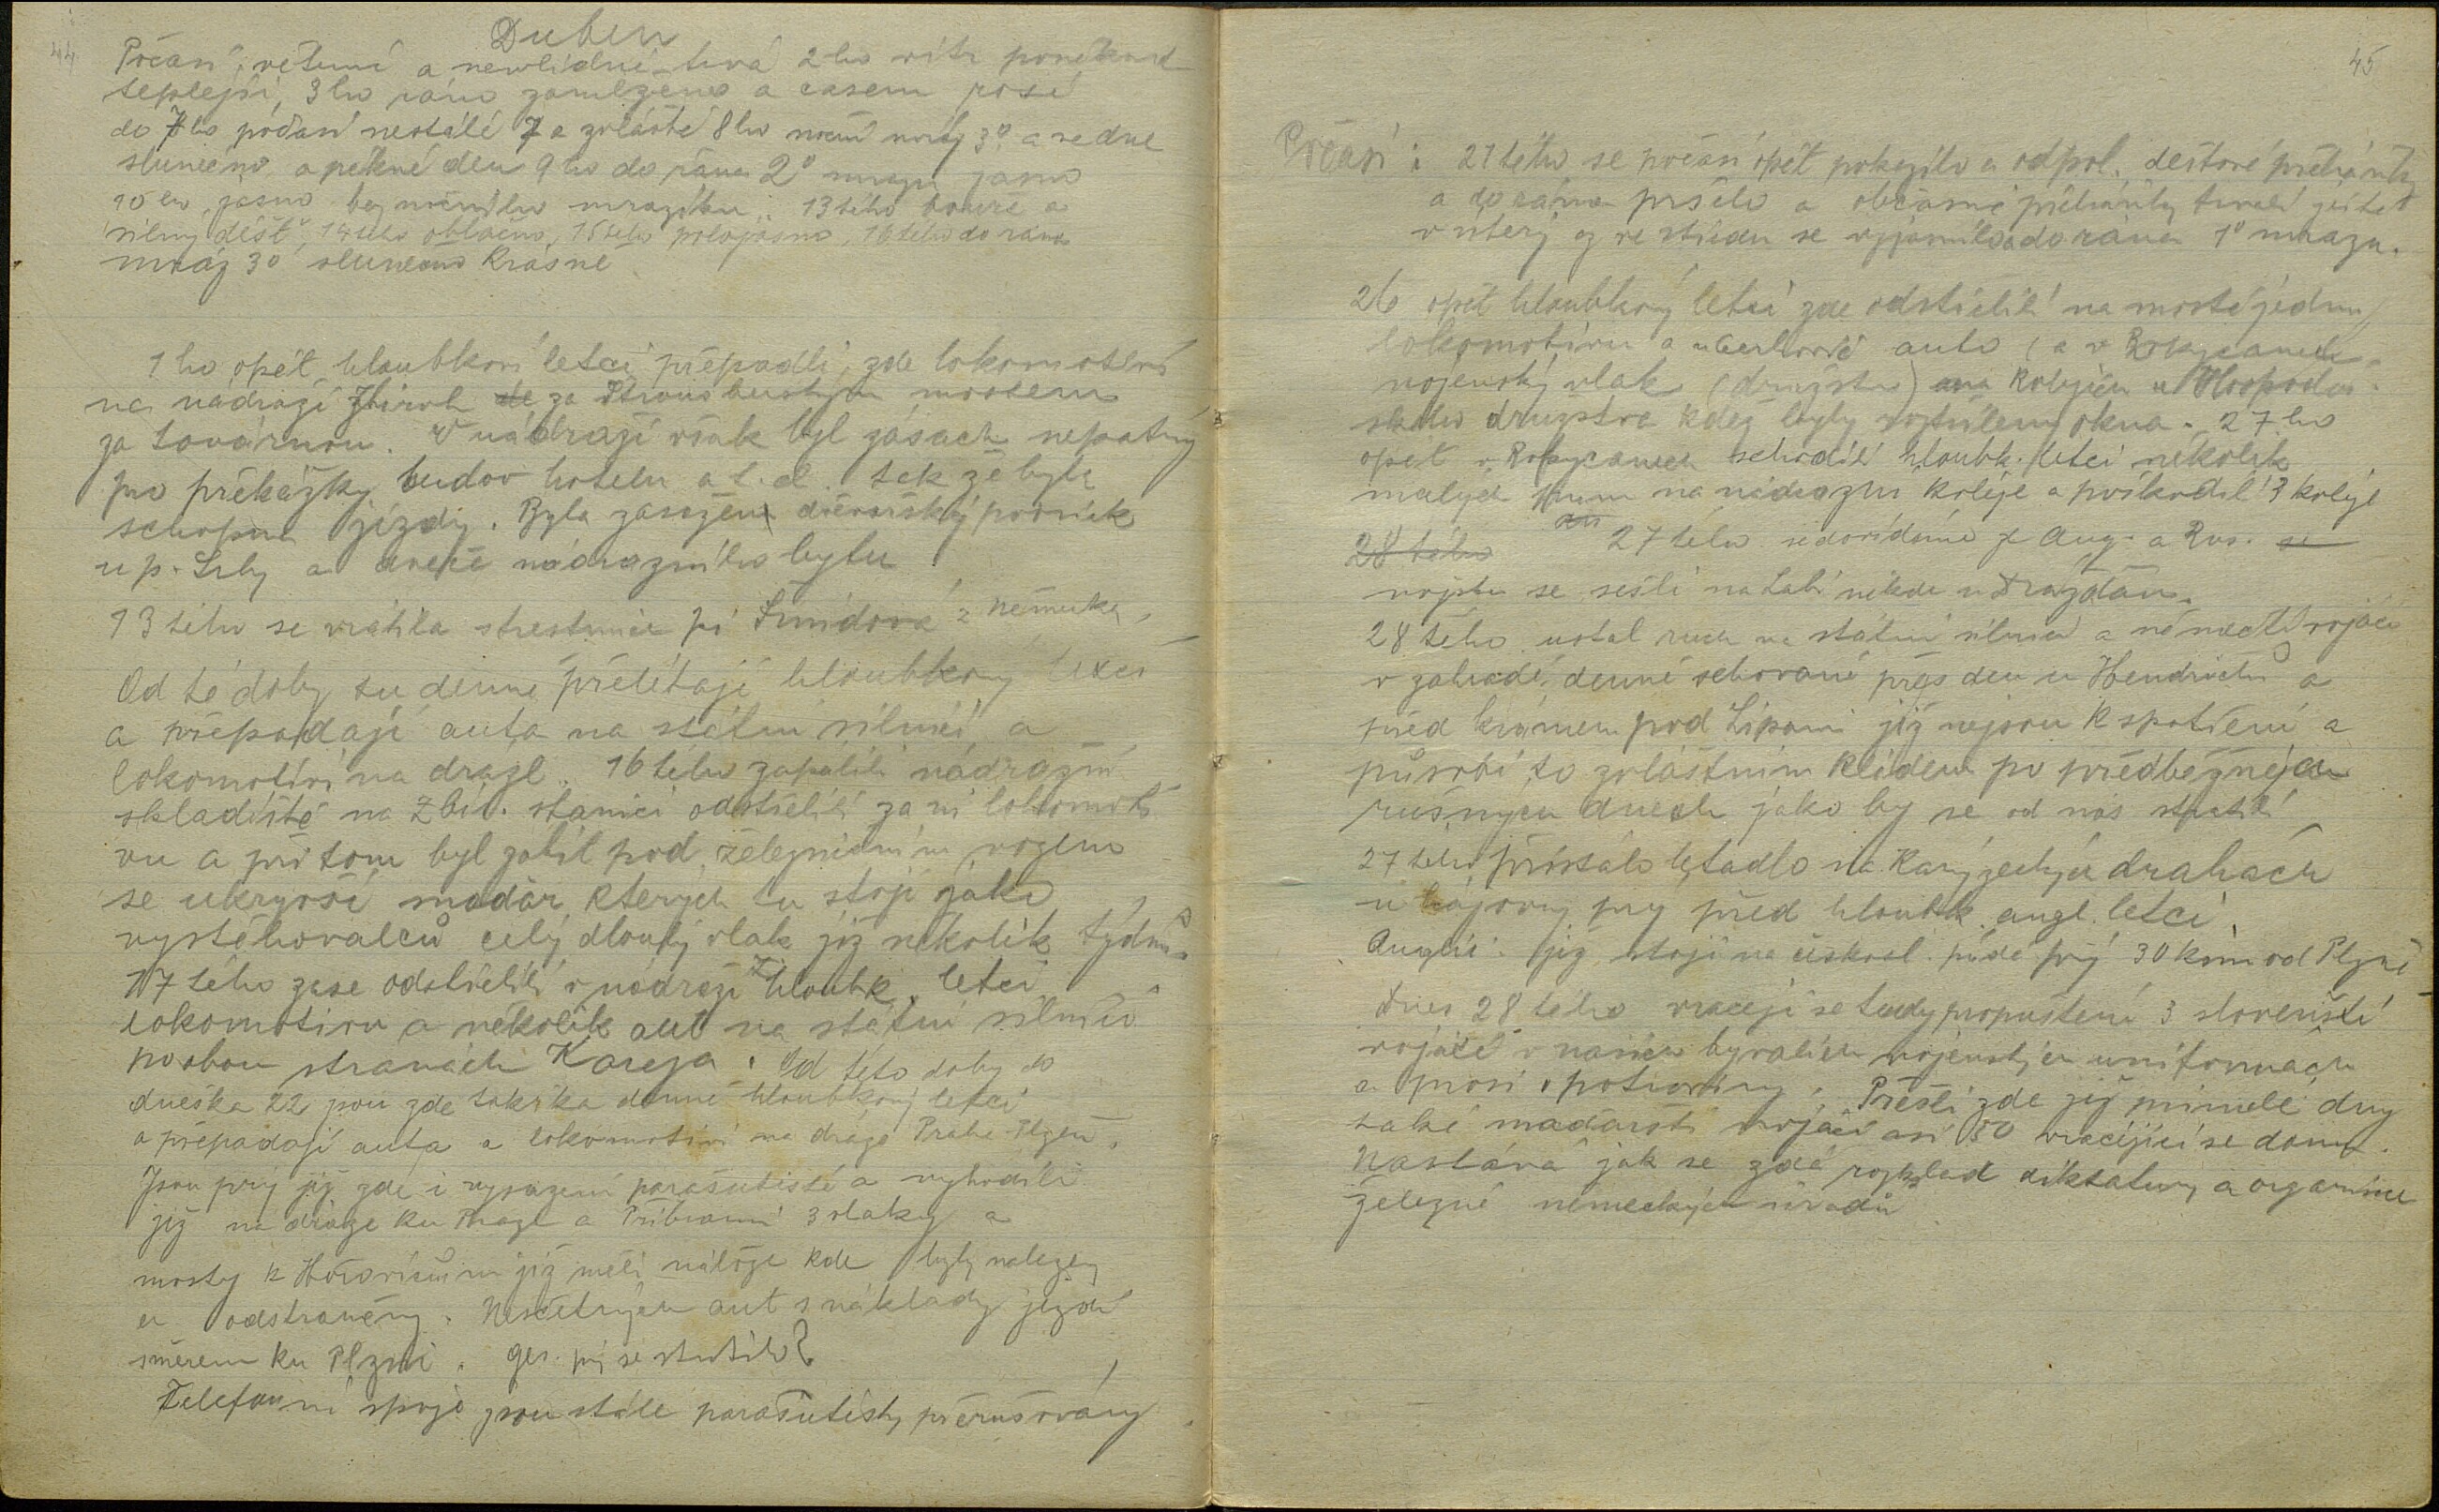 44
Duben
Počasí větrné a nevlídné trvá 2ho vítr poněkud
teplejší, 3ho ráno zamlženo a časem rosí
do 7ho počasí nestálé 7 a zvláště 8ho noční mrázy 3° a ve dne
slunečno a pěkné den 9ho do rána 2° mrazu jasno
10ho jasno bez nočního mrazíku. 13tého bouře a
silný déšť, 14tého oblačno, 15tého polojasno, 16tého do rána
mráz 3° slunečno krásně
1ho opět hloubkoví letci přepadli zde lokomotivu
na nádraží Zbiroh za Štrousberským mostem
za továrnou. V nádraží však byl zásach nepatrný
pro překážky budov hotelu a t. d. tak že byla
schopna jízdy. Byla zasažena dřevařský podnik
u p. Srby a dveře nádražního bytu
13tého se vrátila strestnice pí Šmídová z německa,
Od té doby tu denně přelétají hloubkový letci
a přepadají auta na státní silnici a
lokomotivi na dráze. 16tého zapálili nádražní
skladiště na Zbir. stanici odstřelili za ní lokomoti
vu a při tom byl zabit pod železničním vozem
se ukryvší maďar kterých tu stojí jako
vystěhovalců celý dlouhý vlak již několik týdnů.
17tého zase odstřelili v nádraží hloubk. letci
lokomotivu a několik aut na státní silnici
po obou stranách Kařeza. Od této doby do
dneška 22 jsou zde takřka denně hloubkový letci
a přepadají auta a lokomotivi na dráze Praha Plzeň.
Jsou prý již zde i vysazení parašutisté a vyhodili
již na dráze ku Praze a Příbrami 3 vlaky a
mosty k Hořovicům již měli nálože kde byly nalezeny
a odstraněny. Nesčetných aut s náklady jezdí
směrem ku Plzni. ges. prý se stratilo?
Telefonní spoje jsou stále parašutisty přerušovány
45
Počasí: 21tého se počasí opět pokazilo a odpol. dešťové přeháňky
a do rána pršelo a občasné přeháňky trvali ještě
v úterý a ve středu se vyjasnilo a do rána 1° mrazu.
26 opět hloubkový letci zde odstřelili na mostě jednu
lokomotivu a auto a v Rokycanech
vojenský vlak (družstvo) na kolejích u Hospodář
ského družstva kdež byly vystřileny okna. 27ho
opět v Rokycanech schodili hloubk. letci několik
malých pum na nádražní koleje a poškodili 3 koleje
28tého 27tého se dovídáme že Ang. a Rus. se
vojska se sešli na Labi někde u Drážďan.
28tého ustal ruch na státní silnici a němečtí vojáci
v zahradě denně schované přes den u Hendrichů a
před krámem pod Lipami již nejsou k spatření a
působí to zvláštním klidem po předběžných
rušných dnech jako by se od nás stratili
27tého přistálo letadlo na Karýzeckých drahách
u hájovny prý před hloubk. angl. letci.
Angliči již stojí na českosl. půdě prý 30 km od Plzně
Dnes 28tého vracejí se tudy propuštění 3 slovenští
vojáci v našich bývalích vojenských uniformách
a prosí o potraviny. Přešli zde již minulé dny
také maďarští vojáci asi 50 vracející se domů.
Nastává jak se zdá rozklad diktatury a organisace
železné německých úřadů